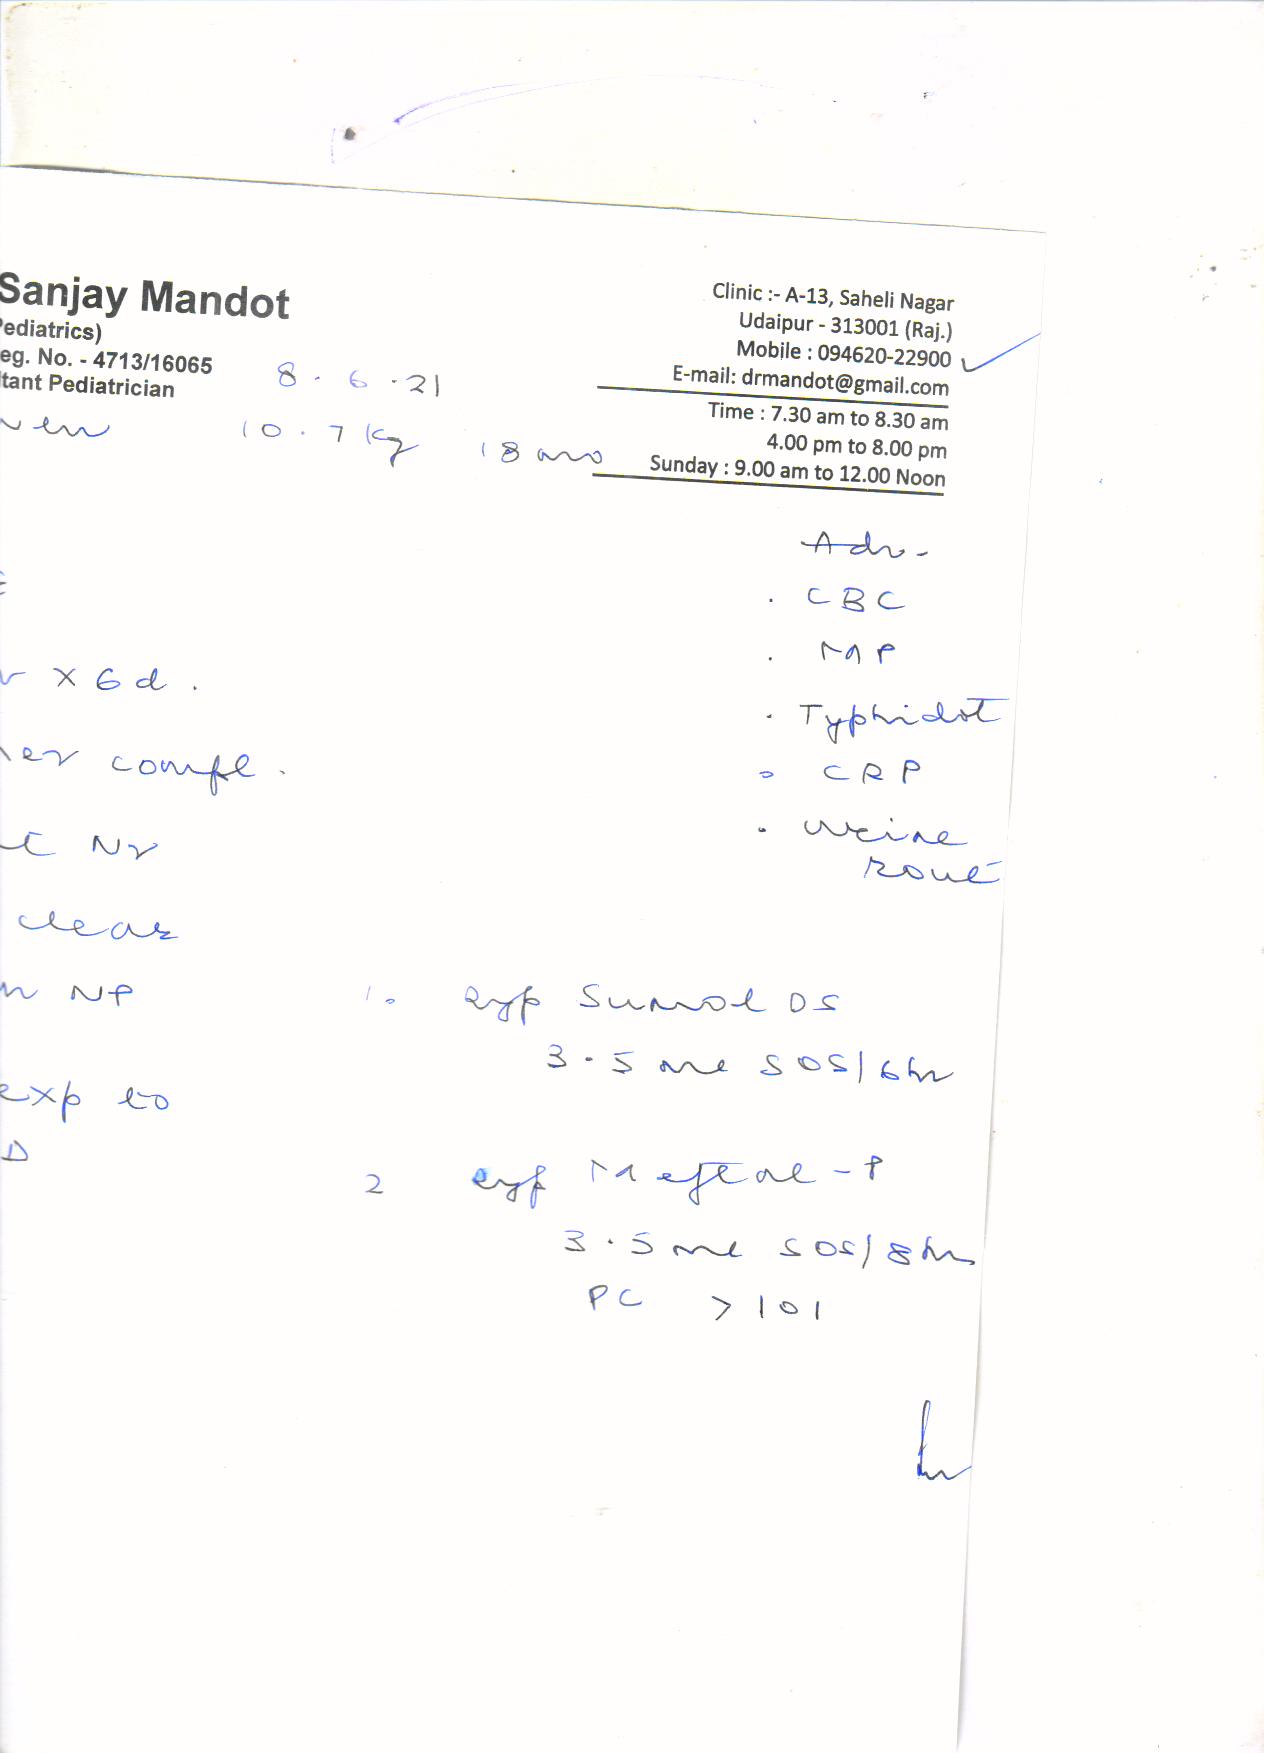 Sanjay Mandot
Pediatrics)
eg. No. - 4713/16065
tant Pediatrician
Clinic :- A-13, Saheli Nagar
Udaipur - 313001 (Raj.)
Mobile : 094620-22900
E-mail: drmandot@gmail.com
Time : 7.30 am to 8.30 am
4.00 pm to 8.00 pm
Sunday : 9.00 am to 12.00 Noon
8 . 6 . 21
10.7 kg 18 mo
Adv -
. CBC
. MP
. Typhidot
. CRP
. urine
rout
x 6d.
her compl.
clear
NP
exp to
D
1. syp Sumol DS
3.5 ml SOS/6hr
2 syp Meftal-P
3.5 ml SOS/8hr
PC > 101